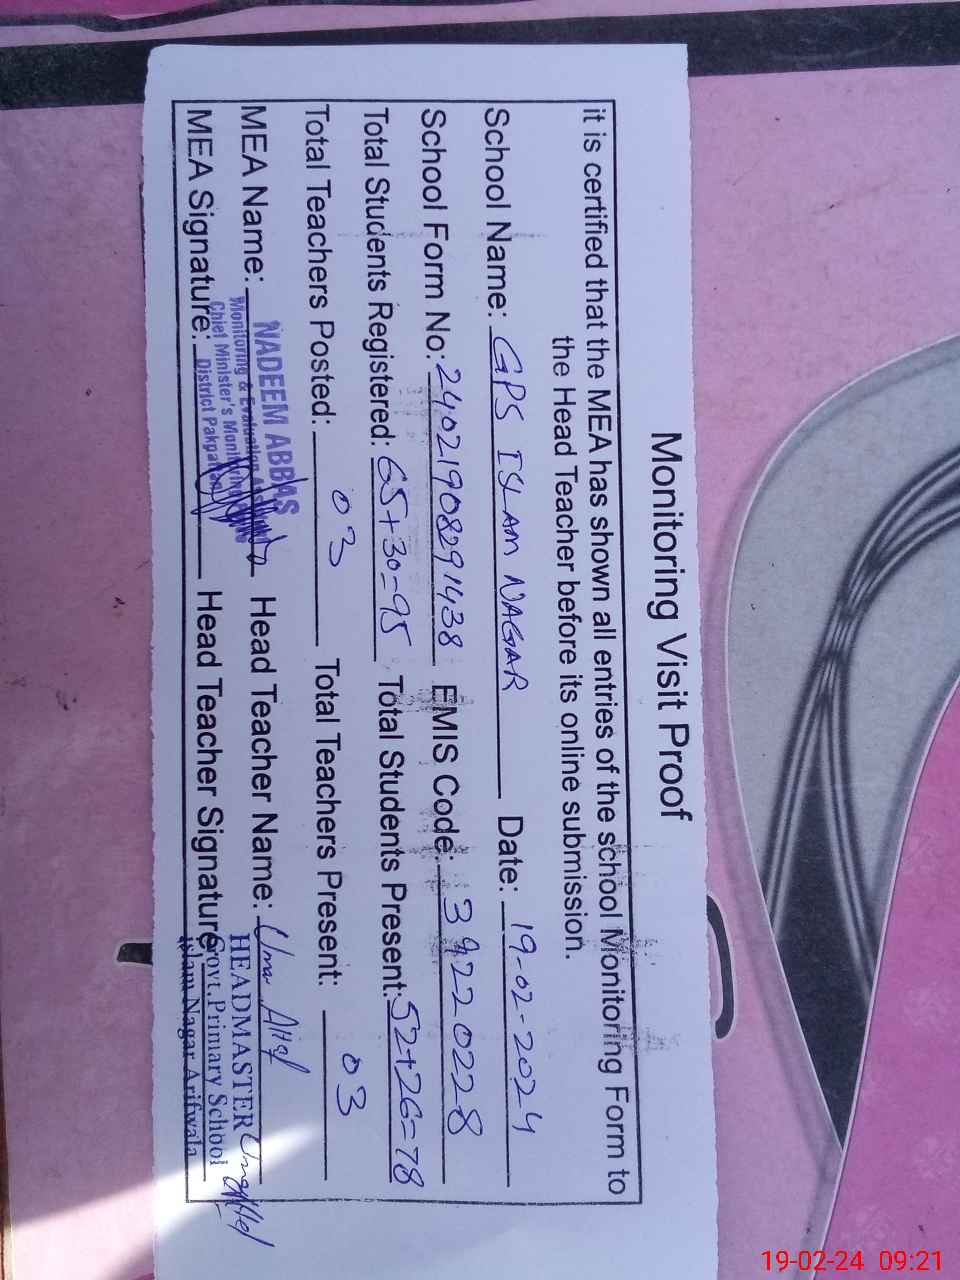 Monitoring Visit Proof
it is certified that the MEA has shown all entries of the school Monitoring Form to
the Head Teacher before its online submission.
School Name: GPS ISLAM NAGAR Date: 19-02-2024
School Form No: 24021908291438 EMIS Code: 39220228
Total Students Registered: 65+30=95 Total Students Present: 52+26=78
Total Teachers Posted: 03 Total Teachers Present: 03
MEA Name: NADEEM ABBAS Head Teacher Name: Umar
Monitoring & Evaluation HEADMASTER
Chief Minister's Govt. Primary School
MEA Signature: District Head Teacher Signature
Islam Nagar Arifwala
19-02-24 09:21